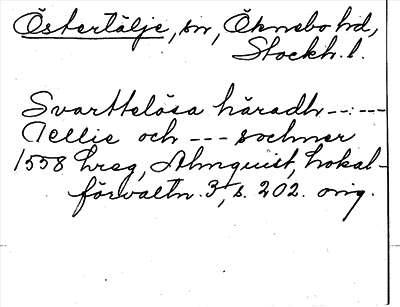 Östertälje, sn, Öknebo hd,
Stockh. l.
Svarttelösa häradh --:---
Tellie och --- sochner
1558 hreg, Almquist, Lokal-
förvaltn. 3, s. 202. orig.